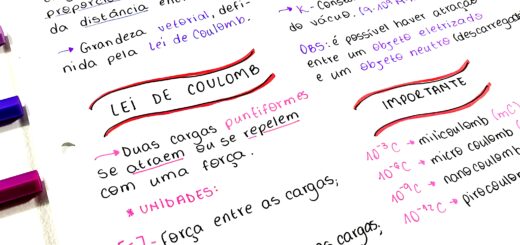 da distância
→ Grandeza vetorial, defi-
nida pela lei de Coulomb.
LEI DE COULOMB
→ Duas cargas puntiformes
se atraem ou se repelem
com uma força.
* UNIDADES:
força entre as cargas;
cargas;
do vácuo.
OBS: é possível haver atração
entre um objeto eletrizado
e um objeto neutro
IMPORTANTE
10⁻³C → milicoulomb (mC)
10⁻⁶C → micro coulomb
10⁻⁹C → nanocoulomb
10⁻¹²C → picocoulomb